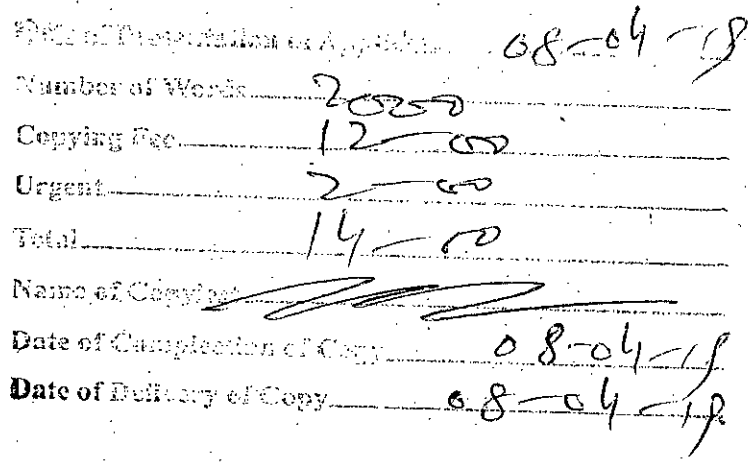 Date of Presentation of Application 08-04-19
Number of Words 2000
Copying Fee 12-00
Urgent 2-00
Total 14-00
Name of Copyiest
Date of Completion of Copy 08-04-19
Date of Delivery of Copy 08-04-19